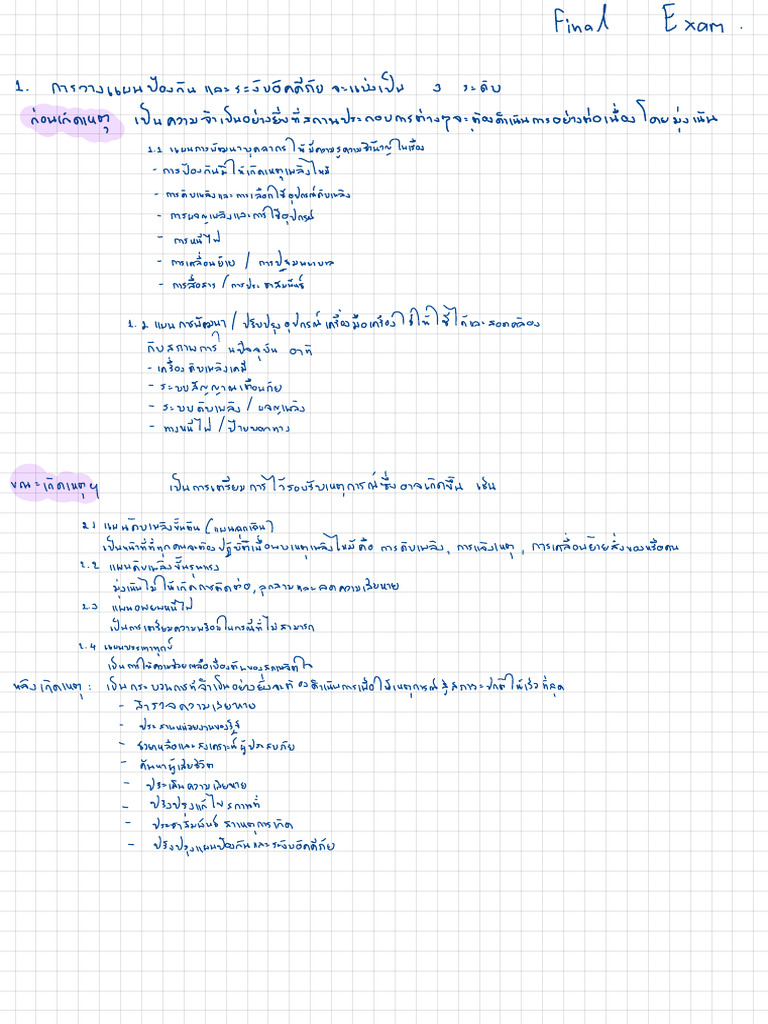 Final Exam.
1. การวางแผนป้องกัน และระงับอัคคีภัย จะแบ่งเป็น 3 ระดับ
ก่อนเกิดเหตุ เป็นความจำเป็นอย่างยิ่งที่สถานประกอบการต่างๆจะต้องดำเนินการอย่างต่อเนื่อง โดยมุ่งเน้น
1.1 แผนการพัฒนาบุคลากรให้มีความรู้ความชำนาญในเรื่อง
- การป้องกันมิให้เกิดเหตุเพลิงไหม้
- การดับเพลิงและการเลือกใช้อุปกรณ์ดับเพลิง
- การผจญเพลิงและการใช้อุปกรณ์
- การหนีไฟ
- การเคลื่อนย้าย / การปฐมพยาบาล
- การสื่อสาร / การประชาสัมพันธ์
1.2 แผนการพัฒนา / ปรับปรุงอุปกรณ์เครื่องมือเครื่องใช้ให้ใช้ได้และสอดคล้อง
กับสภาพการในปัจจุบัน อาทิ
- เครื่องดับเพลิงเคมี
- ระบบสัญญาณเตือนภัย
- ระบบดับเพลิง / ผจญเพลิง
- ทางหนีไฟ / ป้ายบอกทาง
ขณะเกิดเหตุฯ เป็นการเตรียมการไว้รองรับเหตุการณ์ซึ่งอาจเกิดขึ้น เช่น
2.1 แผนดับเพลิงขั้นต้น (แผนฉุกเฉิน)
เป็นหน้าที่ที่ทุกคนจะต้องปฏิบัติเมื่อพบเหตุเพลิงไหม้คือ การดับเพลิง, การแจ้งเหตุ, การเคลื่อนย้ายสิ่งของหรือคน
2.2 แผนดับเพลิงขั้นรุนแรง
มุ่งเน้นไม่ให้เกิดการติดต่อ, ลุกลามและลดความเสียหาย
2.3 แผนอพยพหนีไฟ
เป็นการเตรียมความพร้อมในกรณีที่ไม่สามารถ
2.4 แผนบรรเทาทุกข์
เป็นการให้ความช่วยเหลือเบื้องต้นของ
หลังเกิดเหตุ : เป็นกระบวนการที่จำเป็นอย่างยิ่งจะต้องดำเนินการเพื่อให้เหตุการณ์สู่สภาวะปกติให้เร็วที่สุด
- สำรวจความเสียหาย
- ประสานหน่วยงานของรัฐ
- ช่วยเหลือและสงเคราะห์ผู้ประสบภัย
- ค้นหาผู้เสียชีวิต
- ประเมินความเสียหาย
- ปรับปรุงแก้ไขสถานที่
- ประชาสัมพันธ์สาเหตุการเกิด
- ปรับปรุงแผนป้องกันและระงับอัคคีภัย